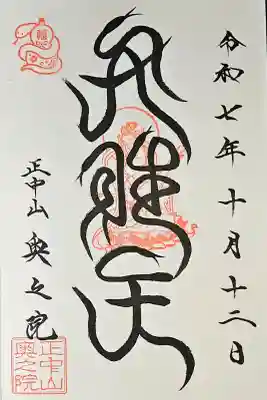 令和七年十月十二日
弁財天
正中山 奥之院
正中山
奥之院